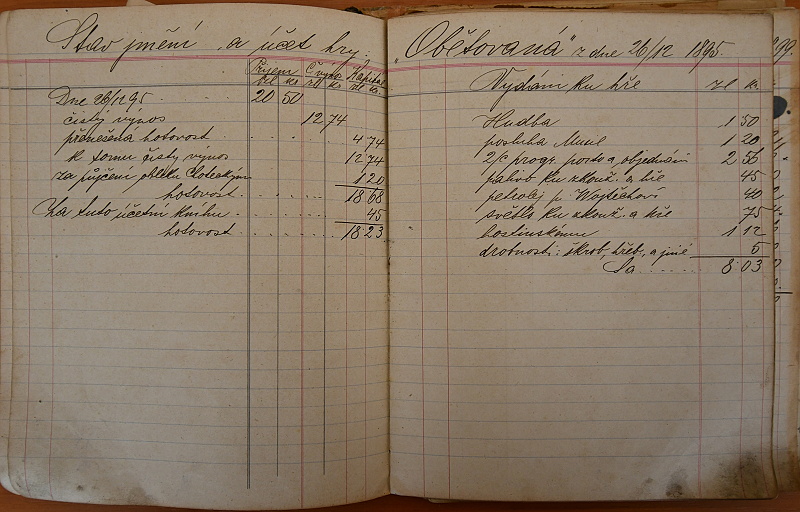 Stav jmění a účet hry:
Příjem Č. výnos Kapitál
zl kr. zl kr. zl kr.
Dne 26/12 95 20 50
čistý výnos 12 74
přenešená hotovost 4 74
k tomu čistý výnos 12 74
za půjčení obleku 1 20
hotovost 18 68
Za tuto účetní knihu 45
hotovost 18 23
„Obětovaná" z dne 26/12 1895.
Vydání ku hře zl kr.
Hudba 1 50
posluha 1 20
progr. porto a objednání 2 56
palivo ku zkouš. a hře 45
petrolej p. Wojtěchovi 40
světlo ku zkouš. a hře 75
hostinskému 1 12
drobnosti: škrob, hřeb. a jiné 5
Sa 8 03
99.